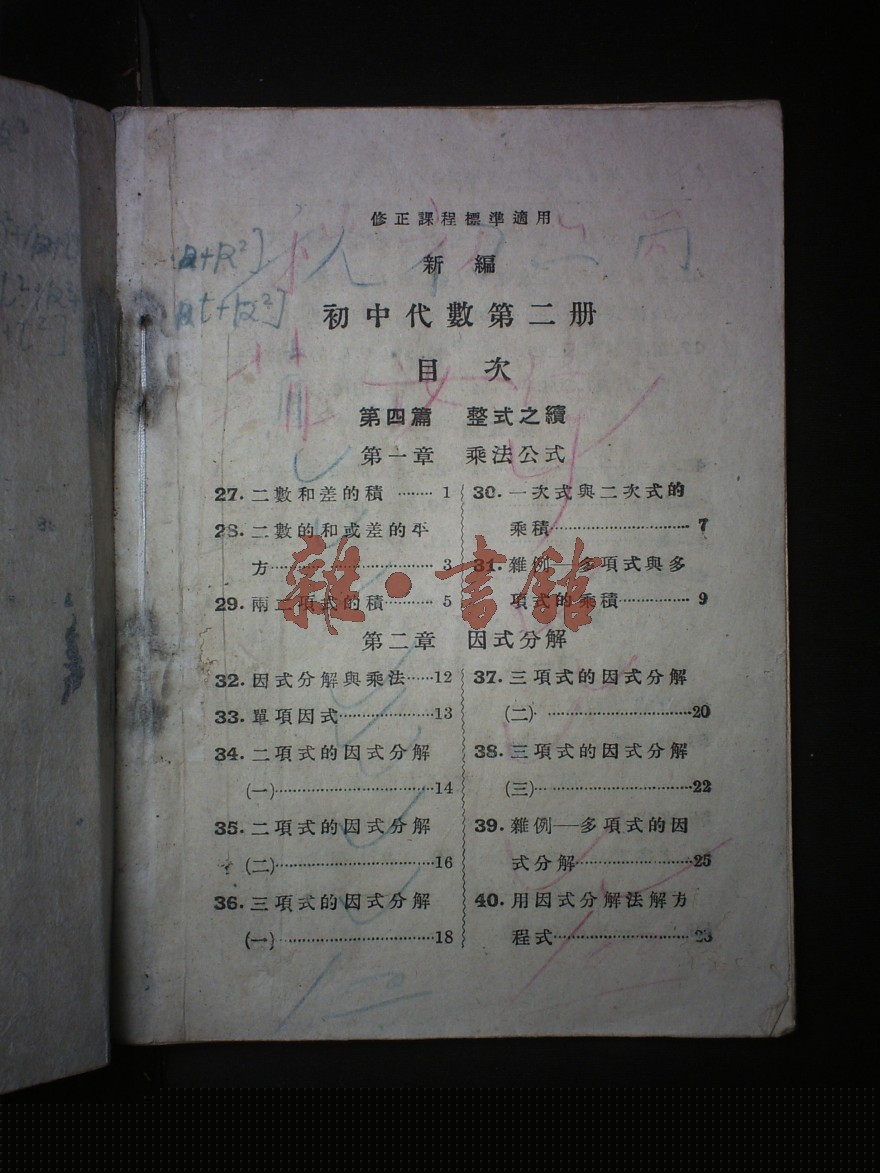 修正課程標準適用
新編
初中代數第二册
目次
第四篇 整式之續
第一章 乘法公式
27. 二數和差的積 ········ 1
28. 二數的和或差的平
方 ········ 3
29. 兩二項式的積 ········ 5
30. 一次式與二次式的
乘積 ········ 7
31. 雜例──多項式與多
項式的乘積 ········ 9
第二章 因式分解
32. 因式分解與乘法 ······ 12
33. 單項因式 ········ 13
34. 二項式的因式分解
(一) ········ 14
35. 二項式的因式分解
(二) ········ 16
36. 三項式的因式分解
(一) ········ 18
37. 三項式的因式分解
(二) ········ 20
38. 三項式的因式分解
(三) ········ 22
39. 雜例──多項式的因
式分解 ········ 25
40. 用因式分解法解方
程式 ········
雜·書館